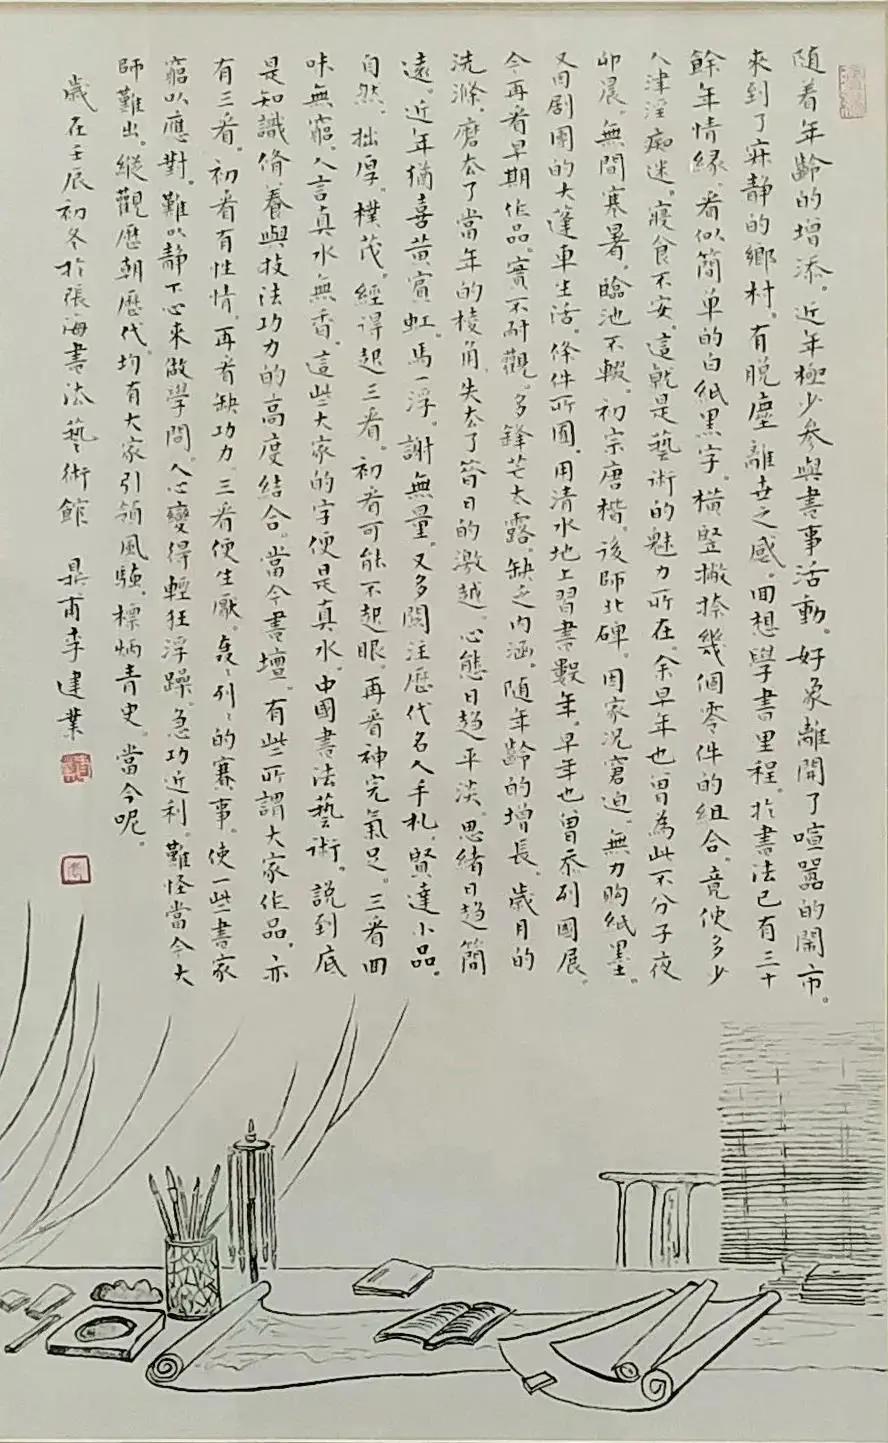 随着年齡的增添。近年極少參與書事活動。好象離開了喧囂的鬧市。
來到了寂静的鄉村。有脱塵離世之感。回想學書里程。於書法已有三十
餘年情緣。看似簡单的白紙黑字。横竪撇捺幾個零件的組合。竟使多少
人津淫痴迷。寢食不安。這就是藝術的魅力所在。余早年也曾為此不分子夜
卯晨。無間寒暑。臨池不輟。初宗唐楷。後師北碑。因家况窘迫。無力购紙墨。
又因剧團的大蓬車生活。條件所囿。用清水地上習書數年。早年也曾忝列國展。
今再看早期作品。實不耐觀。多鋒芒太露。缺乏内涵。随年齡的增長。歲月的
洗滌。磨去了當年的棱角。失去了昔日的激越。心態日趋平淡。思緒日趋簡
遠。近年猶喜黄賓虹。馬一浮。謝無量。又多関注歷代名人手札。賢達小品。
自然。拙厚。樸茂。經得起三看。初看可能不起眼。再看神完氣足。三看回
味無窮。人言真水無香。這些大家的字便是真水。中國書法藝術。説到底
是知識脩養與技法功力的高度結合。當今書壇。有些所謂大家作品。亦
有三看。初看有性情。再看缺功力。三看便生厭。轟轟列列的賽事。使一些書家
窮以應對。難以静下心來做學問。人心變得輕狂浮躁。急功近利。難怪當今大
師難出。縱觀歷朝歷代。均有大家引領風騷。標炳青史。當今呢。
歲在壬辰初冬於張海書法藝術館 鼎甫李建業